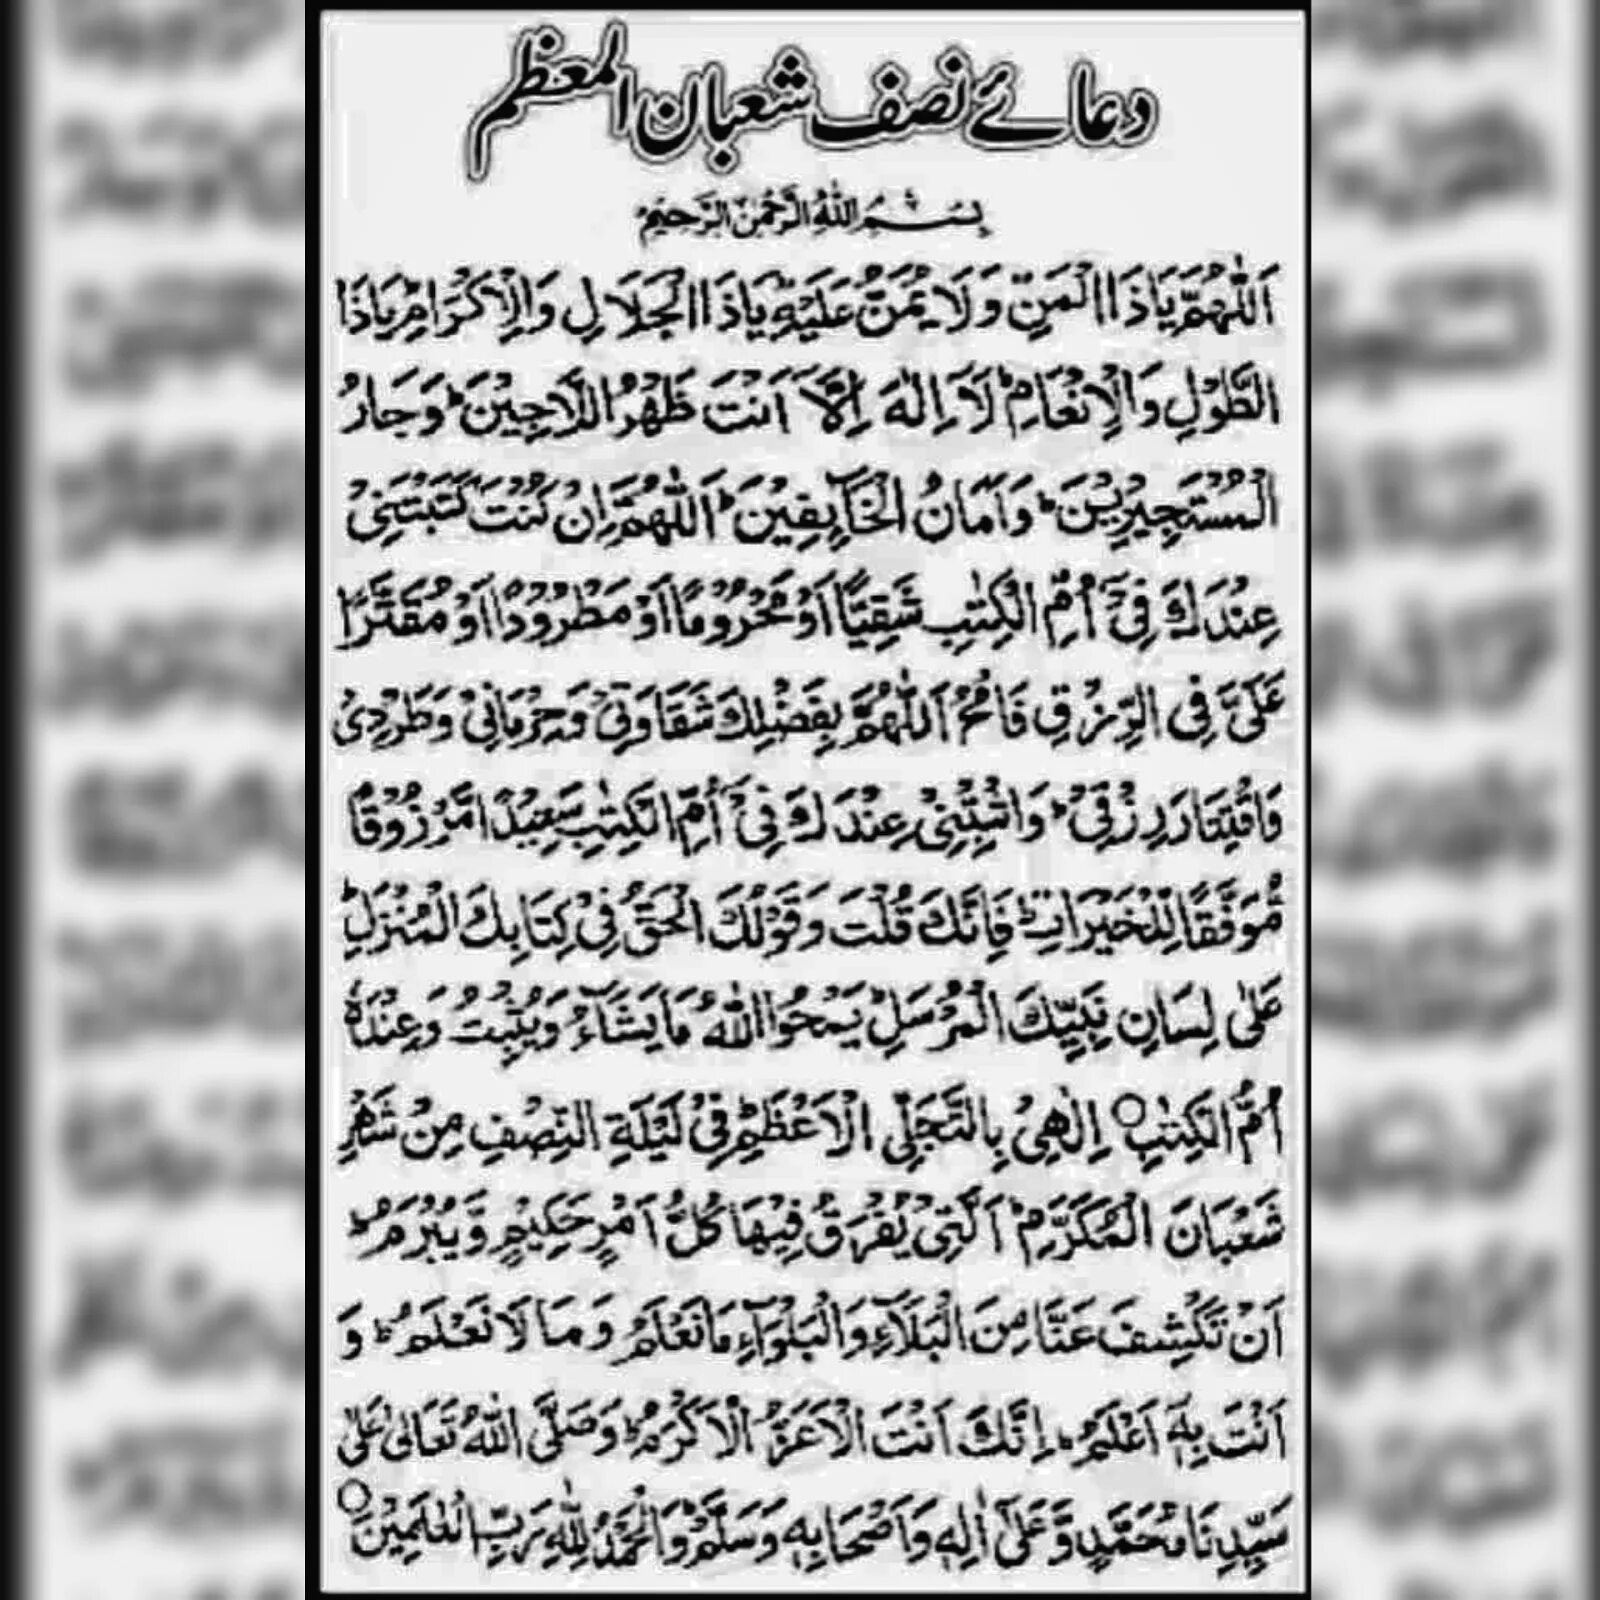 دعائے نصف شعبان المعظم
بِسْمِ اللّٰهِ الرَّحْمٰنِ الرَّحِيْمِ
اَللّٰهُمَّ يَا ذَا الْمَنِّ وَلَا يُمَنُّ عَلَيْهِ يَا ذَا الْجَلَالِ وَالْاِكْرَامِ ط يَا ذَا
الطَّوْلِ وَالْاِنْعَامِ ط لَآ اِلٰهَ اِلَّآ اَنْتَ ظَهْرُ اللَّاجِيْنَ ط وَجَارُ
الْمُسْتَجِيْرِيْنَ ط وَاَمَانُ الْخَآئِفِيْنَ ط اَللّٰهُمَّ اِنْ كُنْتَ كَتَبْتَنِيْ
عِنْدَكَ فِيْٓ اُمِّ الْكِتٰبِ شَقِيًّا اَوْ مَحْرُوْمًا اَوْ مَطْرُوْدًا اَوْ مُقَتَّرًا
عَلَيَّ فِي الرِّزْقِ فَامْحُ اَللّٰهُمَّ بِفَضْلِكَ شَقَاوَتِيْ وَحِرْمَانِيْ وَطَرْدِيْ
وَاقْتِتَارَ رِزْقِيْ ط وَاثْبِتْنِيْ عِنْدَكَ فِيْٓ اُمِّ الْكِتٰبِ سَعِيْدًا مَّرْزُوْقًا
مُّوَفَّقًا لِلْخَيْرَاتِ ط فَاِنَّكَ قُلْتَ وَقَوْلُكَ الْحَقُّ فِيْ كِتَابِكَ الْمُنْزَلِ ط
عَلٰى لِسَانِ نَبِيِّكَ الْمُرْسَلِ ط يَمْحُوا اللّٰهُ مَا يَشَآءُ وَيُثْبِتُ وَعِنْدَهٗٓ
اُمُّ الْكِتٰبِ ○ اِلٰهِيْ بِالتَّجَلِّي الْاَعْظَمِ ط فِيْ لَيْلَةِ النِّصْفِ مِنْ شَهْرِ
شَعْبَانَ الْمُكَرَّمِ ط اَلَّتِيْ يُفْرَقُ فِيْهَا كُلُّ اَمْرٍ حَكِيْمٍ وَّيُبْرَمُ ط
اَنْ تَكْشِفَ عَنَّا مِنَ الْبَلَآءِ وَالْبَلْوَآءِ مَا نَعْلَمُ وَمَا لَا نَعْلَمُ ط وَ
اَنْتَ بِهٖٓ اَعْلَمُ ط اِنَّكَ اَنْتَ الْاَعَزُّ الْاَكْرَمُ ط وَصَلَّى اللّٰهُ تَعَالٰى عَلٰى
سَيِّدِنَا مُحَمَّدٍ وَّعَلٰٓى اٰلِهٖ وَاَصْحَابِهٖ وَسَلَّمَ ط وَالْحَمْدُ لِلّٰهِ رَبِّ الْعٰلَمِيْنَ ○